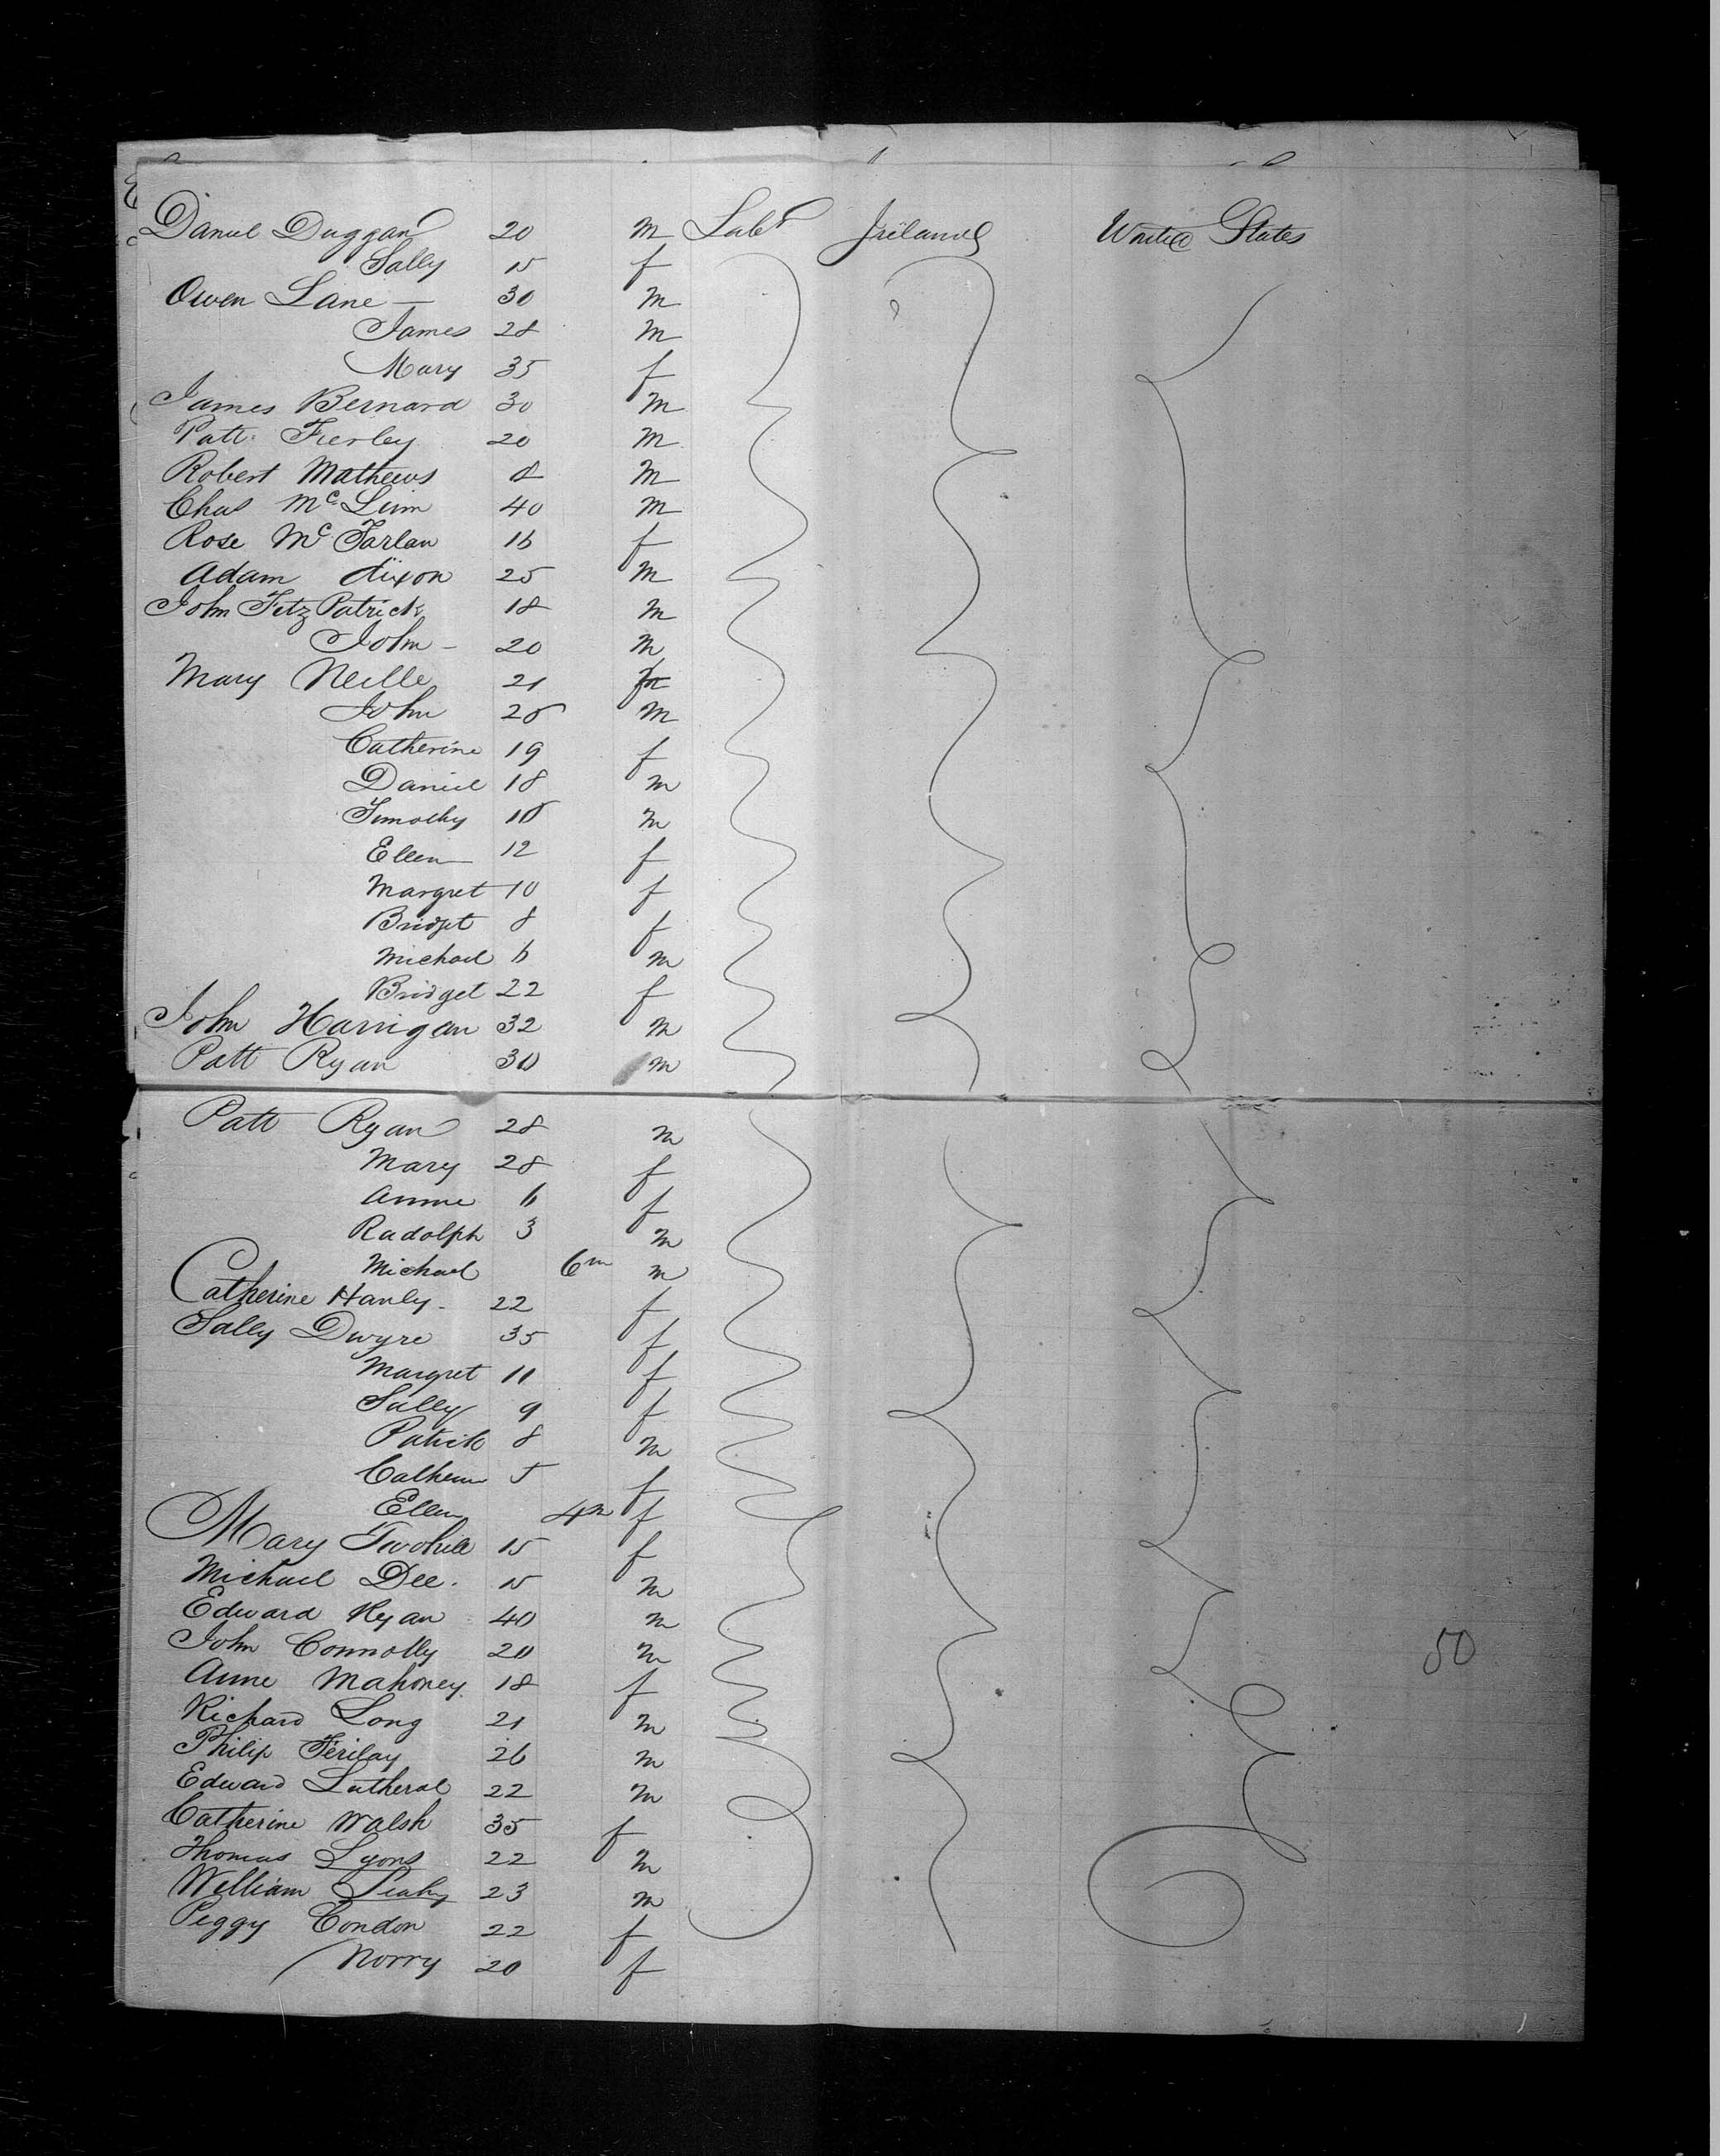 Daniel Duggan 20 m Labr Ireland United States
Sally 15 f
Owen Lane — 30 m
James 28 m
Mary 35 f
James Bernard 30 m
Patt 20 m
Robert Mathews m
Chas Mc 40 m
Rose McFarlan 16 f
Adam dixon 25 m
John FitzPatrick 18 m
John - 20 m
Mary Neille 21 f
John 25 m
Catherine 19 f
Daniel 18 m
Timothy m
Ellen 12 f
Margret 10 f
Bridget 8 f
Michael 6 m
Bridget 22 f
John Harrigan 32 m
Patt Ryan 30 m
Patt Ryan 28 m
Mary 28 f
Annie 6 f
Radolph 3 m
Michael 6m m
Catherine Hanly - 22 f
Sally Dwyre 35 f
Margret 11 f
Sally 9 f
Patrick 8 m
5 f
Ellen 4m f
Mary Twohill 15 f
Michael Dee. 15 m
Edward Ryan 40 m
John Connolly 20 m
Anne Mahoney 18 f
Richard Long 21 m
Philip 26 m
Edward 22 m
Catherine Walsh 35 f
Thomas Lyons 22 m
William Leahy 23 m
Peggy Condon 22 f
Norry 20 f
50